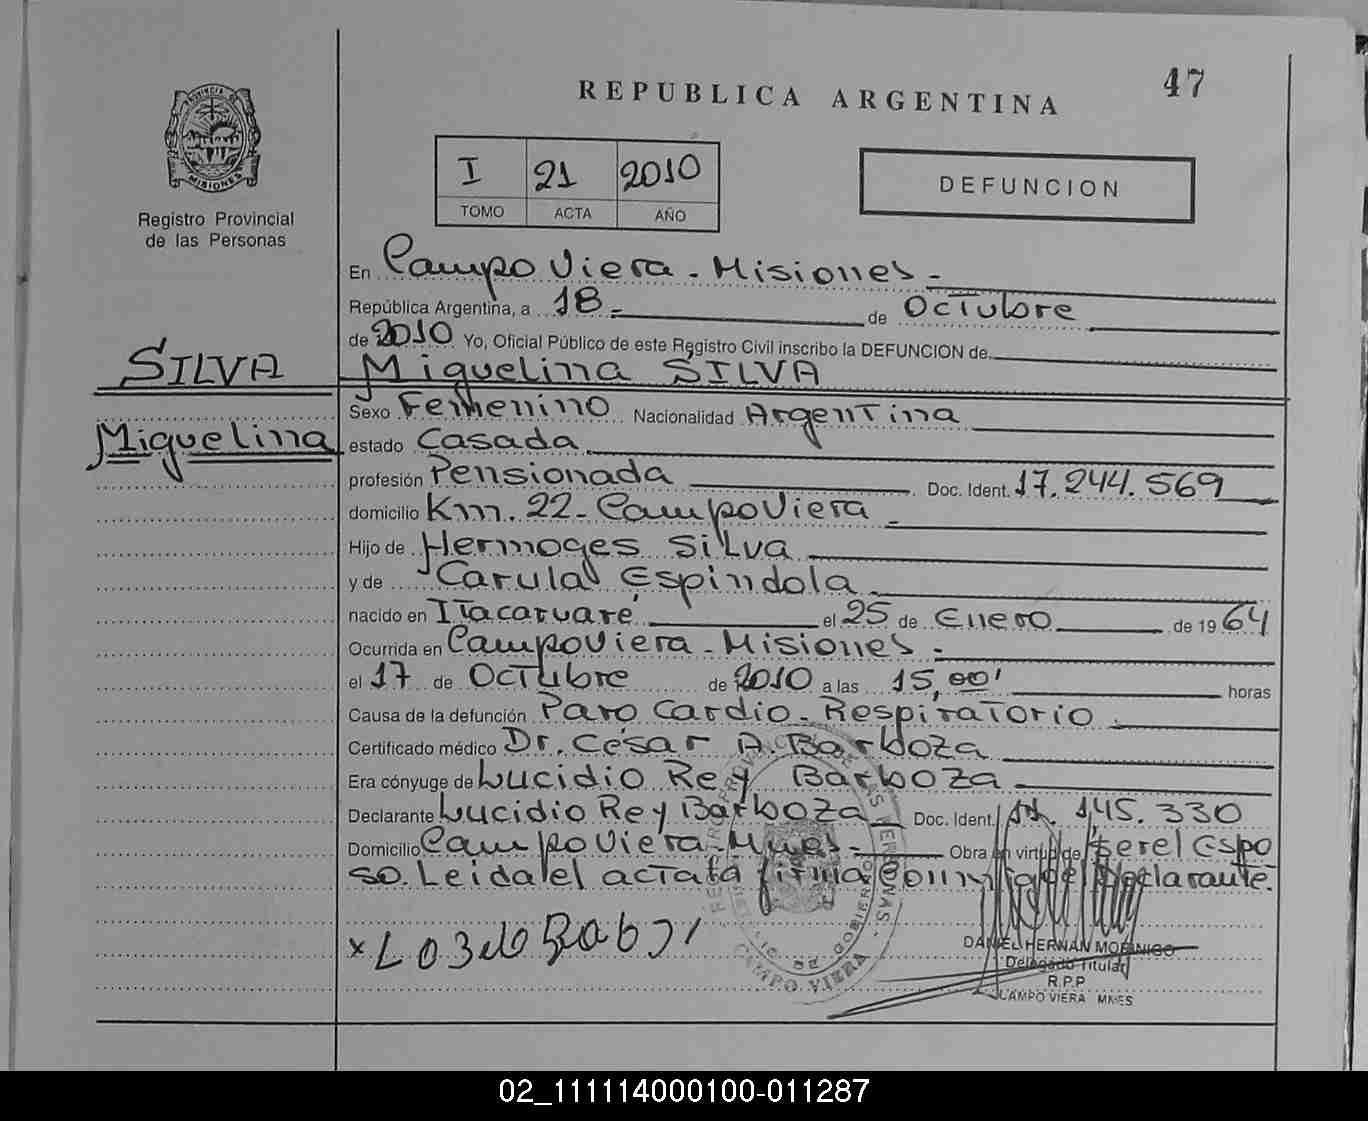 47
REPUBLICA ARGENTINA
PROVINCIA DE
MISIONES
Registro Provincial
de las Personas
I 21 2010
TOMO ACTA AÑO
DEFUNCION
En Campo Viera - Misiones -
República Argentina, a 18 - de Octubre
de 2010 Yo, Oficial Público de este Registro Civil inscribo la DEFUNCION de
SILVA
Miguelina SILVA
Miguelina
Sexo Femenino Nacionalidad Argentina
estado Casada
profesión Pensionada Doc. Ident. 17.244.569
domicilio Km. 22 - Campo Viera -
Hijo de Hermoges Silva
y de Carula Espindola
nacido en Itacaruaré el 25 de Enero de 19 64
Ocurrida en Campo Viera - Misiones -
el 17 de Octubre de 2010 a las 15,00' horas
Causa de la defunción Paro Cardio - Respiratorio
Certificado médico Dr. César A. Barboza
Era cónyuge de Lucidio Rey Barboza
Declarante Lucidio Rey Barboza Doc. Ident. 145.330
Domicilio Campo Viera - Mnes - Obra en virtud de ser el Espo
so. Leida el acta la firma conmigo el Declarante.
x
DANIEL HERNAN MORINIGO
Delegado Titular
R.P.P
CAMPO VIERA MNES
CAMPO VIERA
02_111114000100-011287